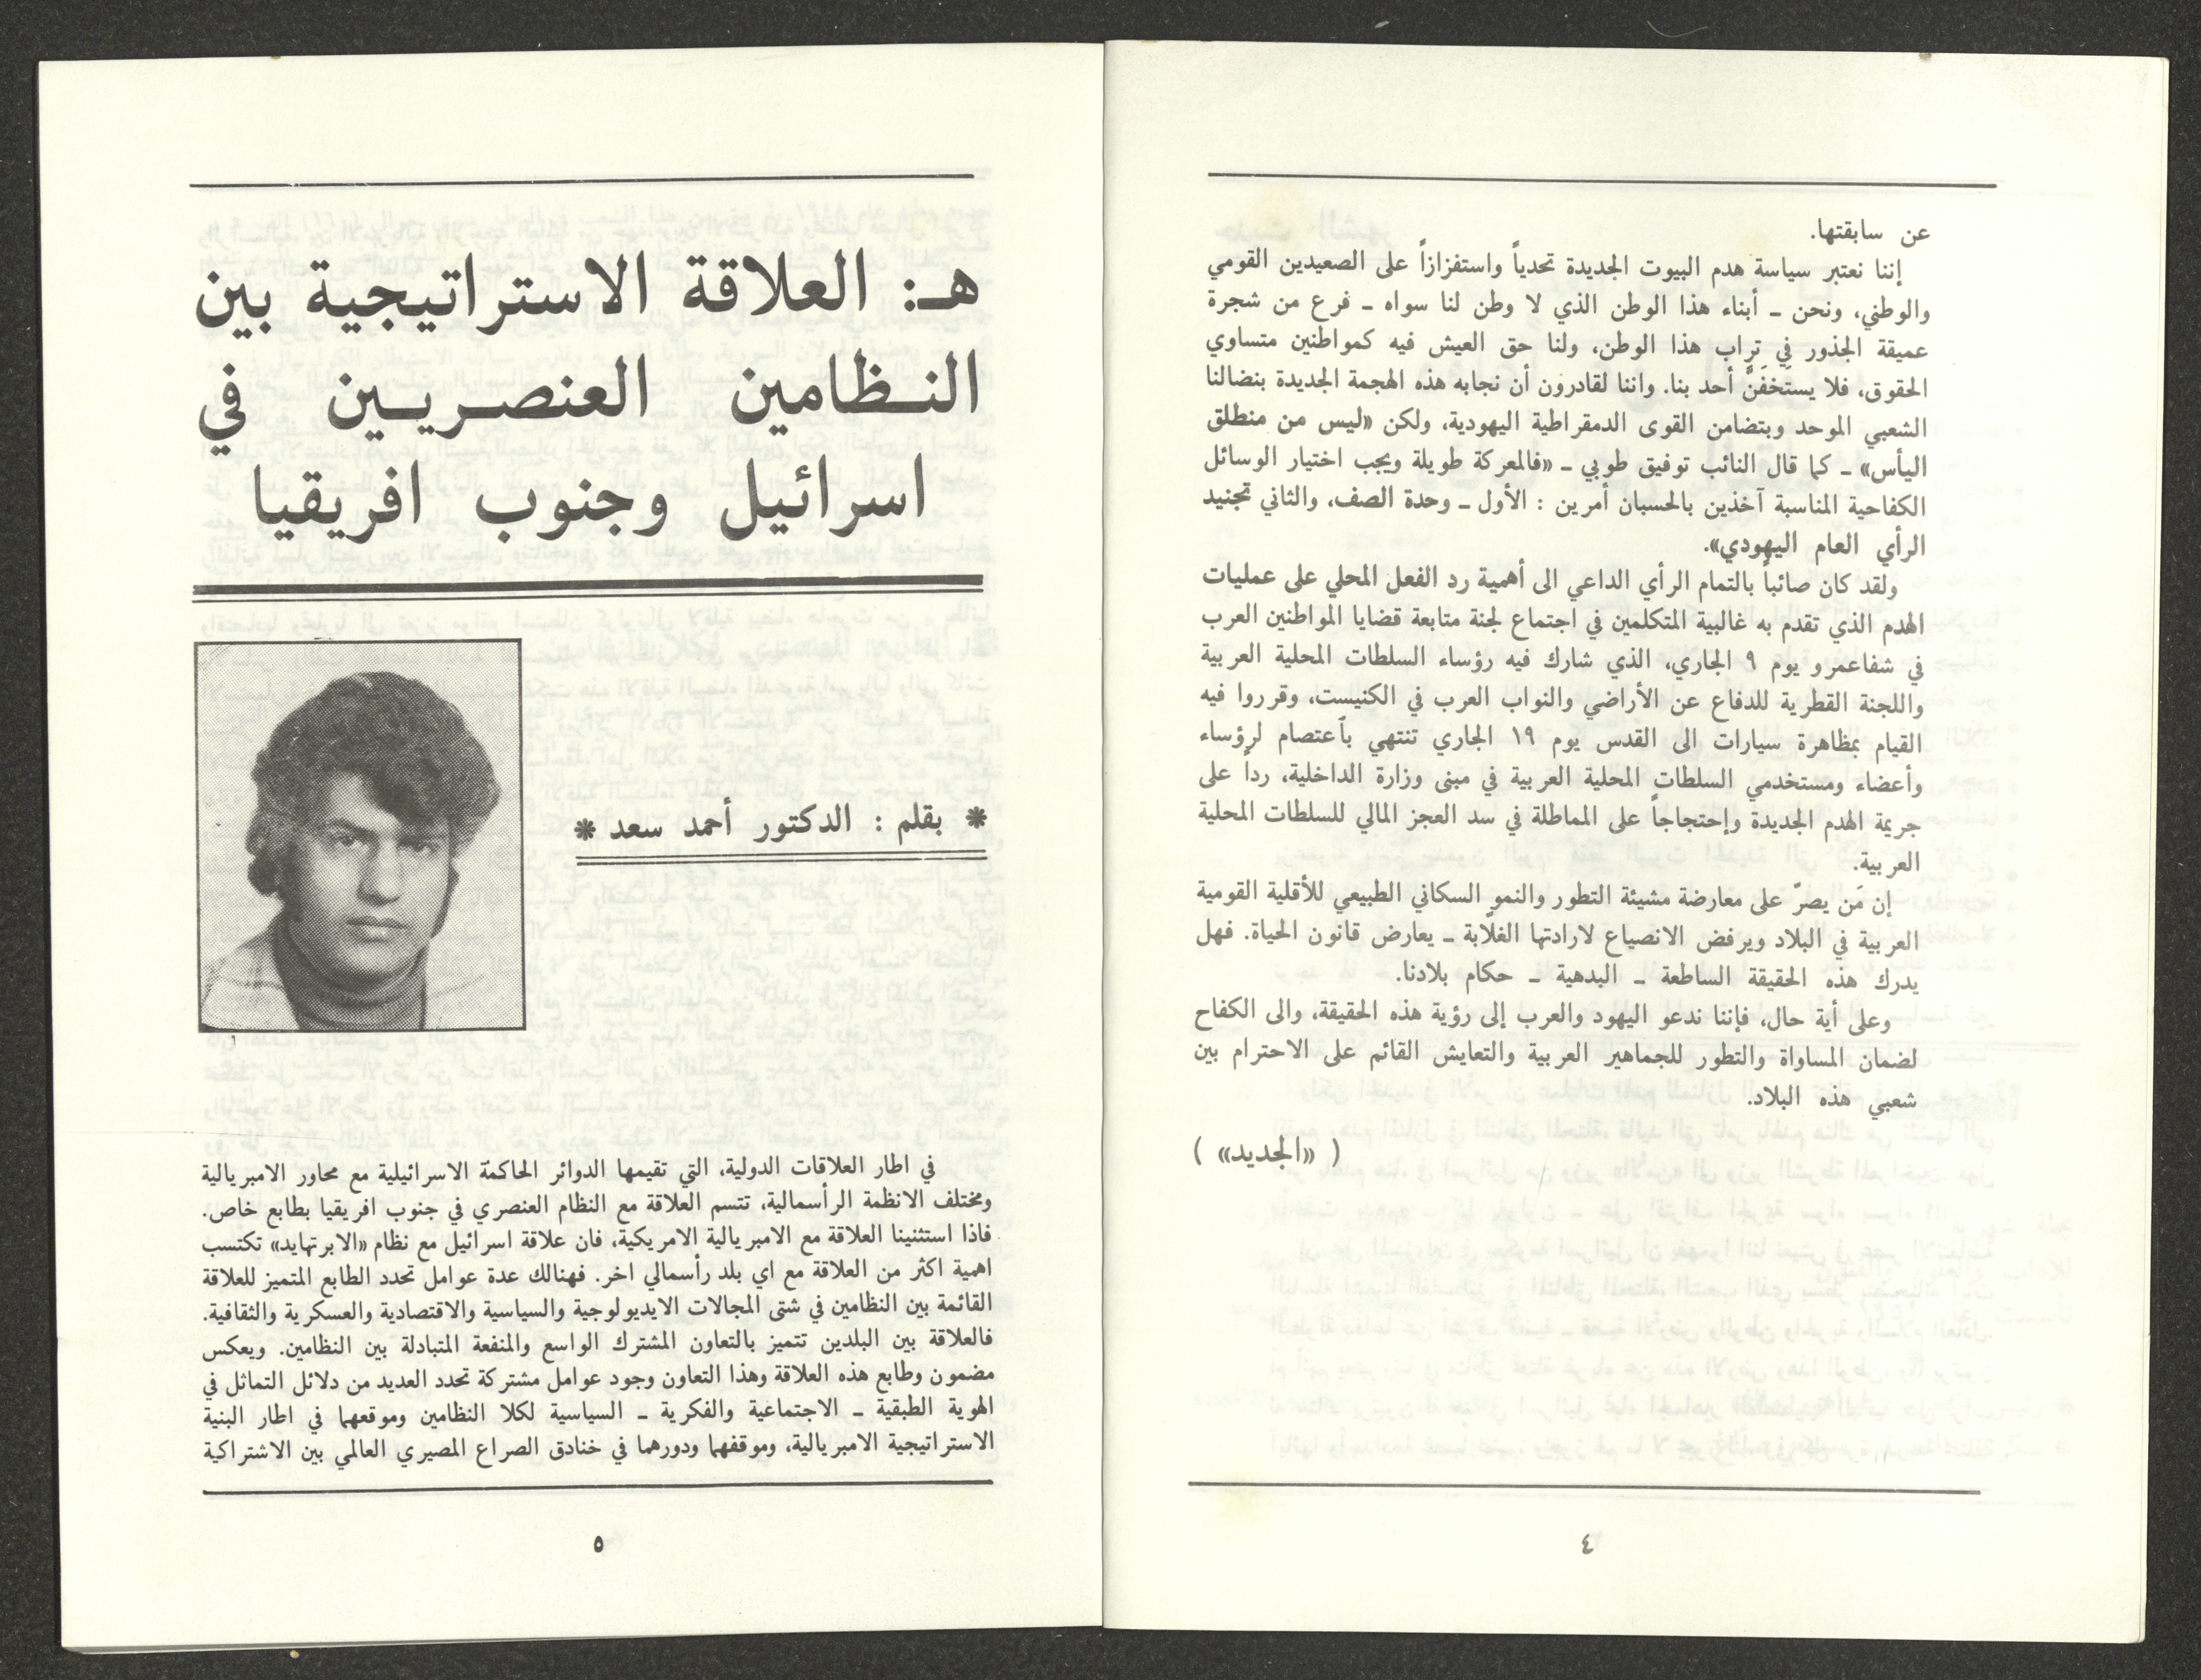 عن سابقتها.
إننا نعتبر سياسة هدم البيوت الجديدة تحدياً واستفزازاً على الصعيدين القومي
والوطني، ونحن ـ أبناء هذا الوطن الذي لا وطن لنا سواه ـ فرع من شجرة
عميقة الجذور في تراب هذا الوطن، ولنا حق العيش فيه كمواطنين متساوي
الحقوق، فلا يستَخفَنَّ أحد بنا. واننا لقادرون أن نجابه هذه الهجمة الجديدة بنضالنا
الشعبي الموحد وبتضامن القوى الدمقراطية اليهودية، ولكن «ليس من منطلق
اليأس» ـ كما قال النائب توفيق طوبي ـ «فالمعركة طويلة ويجب اختيار الوسائل
الكفاحية المناسبة آخذين بالحسبان أمرين : الأول ـ وحدة الصف، والثاني تجنيد
الرأي العام اليهودي».
ولقد كان صائباً بالتمام الرأي الداعي الى أهمية رد الفعل المحلي على عمليات
الهدم الذي تقدم به غالبية المتكلمين في اجتماع لجنة متابعة قضايا المواطنين العرب
في شفاعمرو يوم ٩ الجاري، الذي شارك فيه رؤساء السلطات المحلية العربية
واللجنة القطرية للدفاع عن الأراضي والنواب العرب في الكنيست، وقرروا فيه
القيام بمظاهرة سيارات الى القدس يوم ١٩ الجاري تنتهي بآعتصام لرؤساء
وأعضاء ومستخدمي السلطات المحلية العربية في مبنى وزارة الداخلية، رداً على
جريمة الهدم الجديدة وإحتجاجاً على المماطلة في سد العجز المالي للسلطات المحلية
العربية.
إن مَن يصرّ على معارضة مشيئة التطور والنمو السكاني الطبيعي للأقلية القومية
العربية في البلاد ويرفض الانصياع لارادتها الغلّابة ـ يعارض قانون الحياة. فهل
يدرك هذه الحقيقة الساطعة ـ البدهية ـ حكام بلادنا.
وعلى أية حال، فإننا ندعو اليهود والعرب إلى رؤية هذه الحقيقة، والى الكفاح
لضمان المساواة والتطور للجماهير العربية والتعايش القائم على الاحترام بين
شعبي هذه البلاد.
( «الجديد» )
٤
هـ: العلاقة الاستراتيجية بين
النـظامين العنصـريـين في
اسرائيل وجنوب افريقيا
* بقلم : الدكتور أحمد سعد *
في اطار العلاقات الدولية، التي تقيمها الدوائر الحاكمة الاسرائيلية مع محاور الامبريالية
ومختلف الانظمة الرأسمالية، تتسم العلاقة مع النظام العنصري في جنوب افريقيا بطابع خاص.
فاذا استثنينا العلاقة مع الامبريالية الامريكية، فان علاقة اسرائيل مع نظام «الابرتهايد» تكتسب
اهمية اكثر من العلاقة مع اي بلد رأسمالي اخر. فهنالك عدة عوامل تحدد الطابع المتميز للعلاقة
القائمة بين النظامين في شتى المجالات الايديولوجية والسياسية والاقتصادية والعسكرية والثقافية.
فالعلاقة بين البلدين تتميز بالتعاون المشترك الواسع والمنفعة المتبادلة بين النظامين. ويعكس
مضمون وطابع هذه العلاقة وهذا التعاون وجود عوامل مشتركة تحدد العديد من دلائل التماثل في
الهوية الطبقية ـ الاجتماعية والفكرية ـ السياسية لكلا النظامين وموقعهما في اطار البنية
الاستراتيجية الامبريالية، وموقفهما ودورهما في خنادق الصراع المصيري العالمي بين الاشتراكية
٥